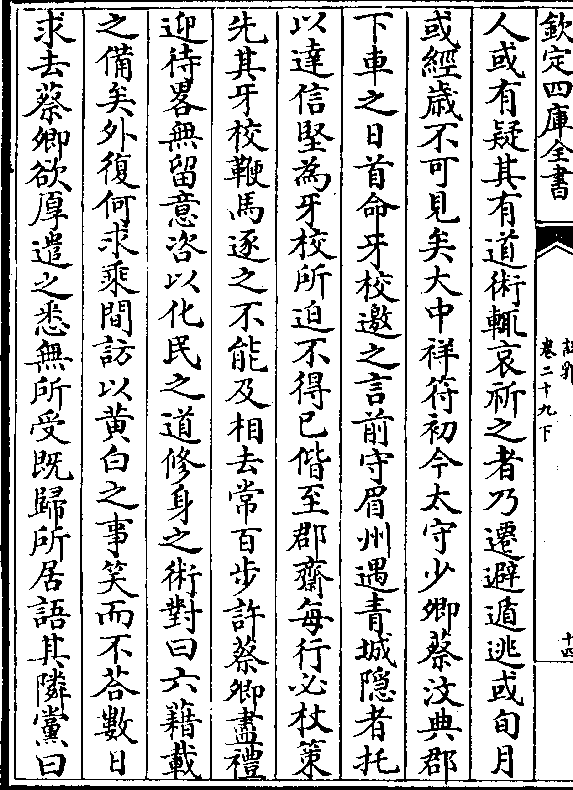 欽定四庫全書
說郛
卷二十九下
十四
人或有疑其有道術輒哀祈之者乃遷避遁逃或旬月
或經歲不可見矣大中祥符初今太守少卿蔡汶典郡
下車之日首命牙校邀之言前守眉州遇青城隱者托
以達信堅為牙校所迫不得已偕至郡齋每行必杖策
先其牙校鞭馬逐之不能及相去常百步許蔡卿盡禮
迎待畧無留意咨以化民之道修身之術對曰六籍載
之備矣外復何求乘間訪以黄白之事笑而不答數日
求去蔡卿欲厚遣之悉無所受既歸所居語其隣黨曰